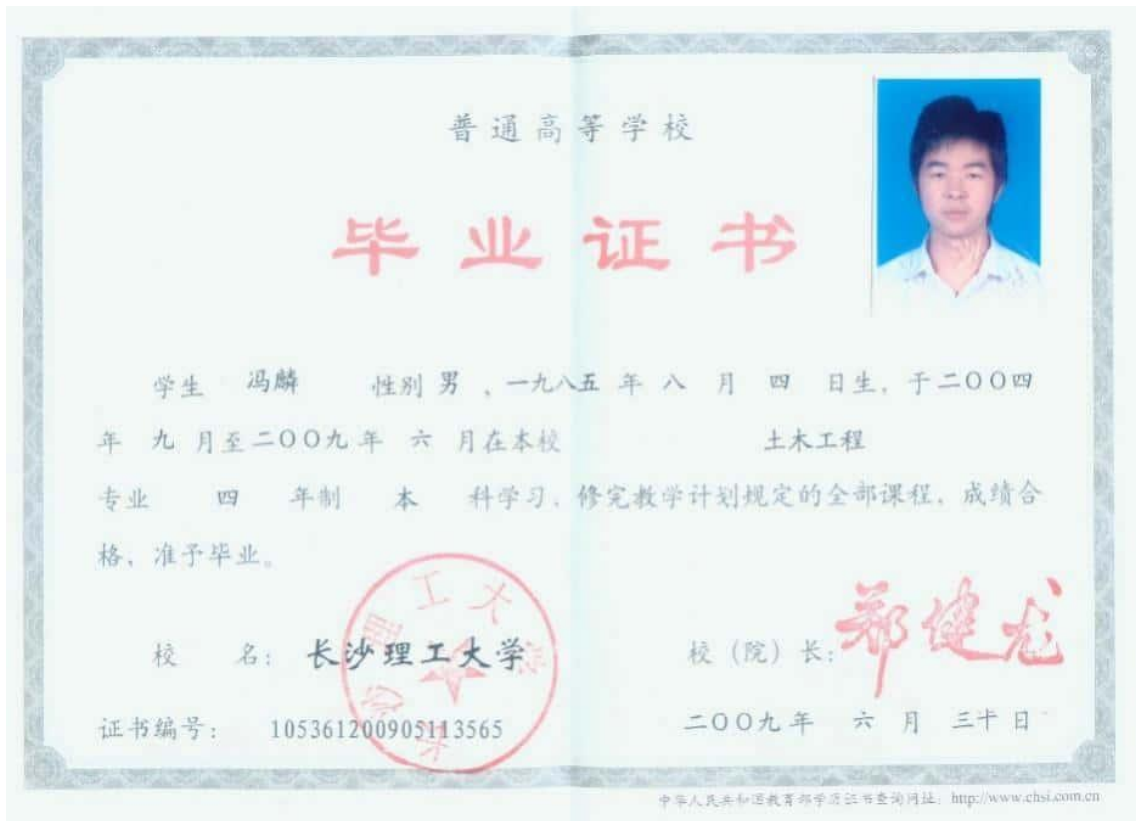 普通高等学校
毕业证书
学生 冯麟 性别 男 、一九八五 年 八 月 四 日生, 于二〇〇四
年 九 月至二〇〇九年 六 月在本校 土木工程
专业 四 年制 本 科学习, 修完教学计划规定的全部课程, 成绩合
格, 准予毕业。
长沙理工大学
校 名: 长沙理工大学
校(院)长: 郑健龙
证书编号: 105361200905113565
二〇〇九年 六 月 三十 日
中华人民共和国教育部学历证书查询网址: http://www.chsi.com.cn